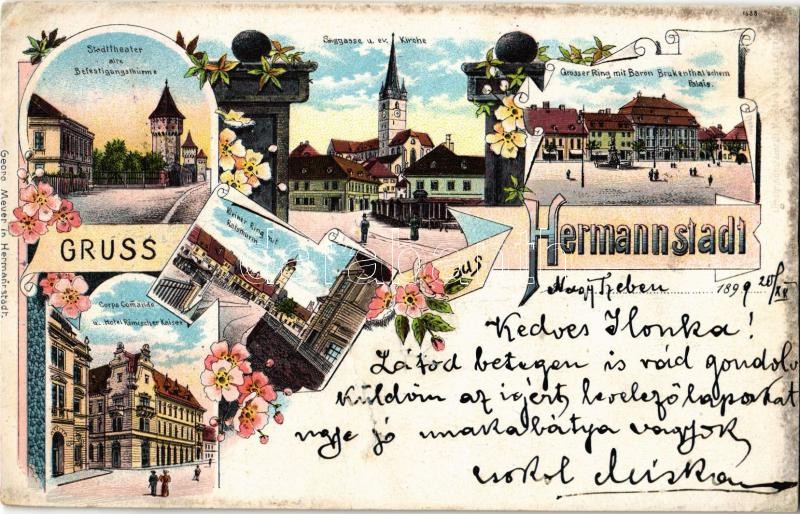 1488
Stadttheater
alte
Befestigungsthürme
Saggasse u. ev. Kirche
Grosser Ring mit Baron Brukenthal'schem
Palais.
GRUSS
aus
Hermannstadt
Kleiner Ring mit
Ratsthurm
Corps Comando
u. Hotel Römischer Kaiser
Georg Meyer in Hermannstadt.
Nagy Szeben 1899 20/XII
Kedves Ilonka!
Látod betegen is rád gondolv
küldöm az igért levelezőlapokat
ugye jó unokabátya vagyok,
csokol Miska